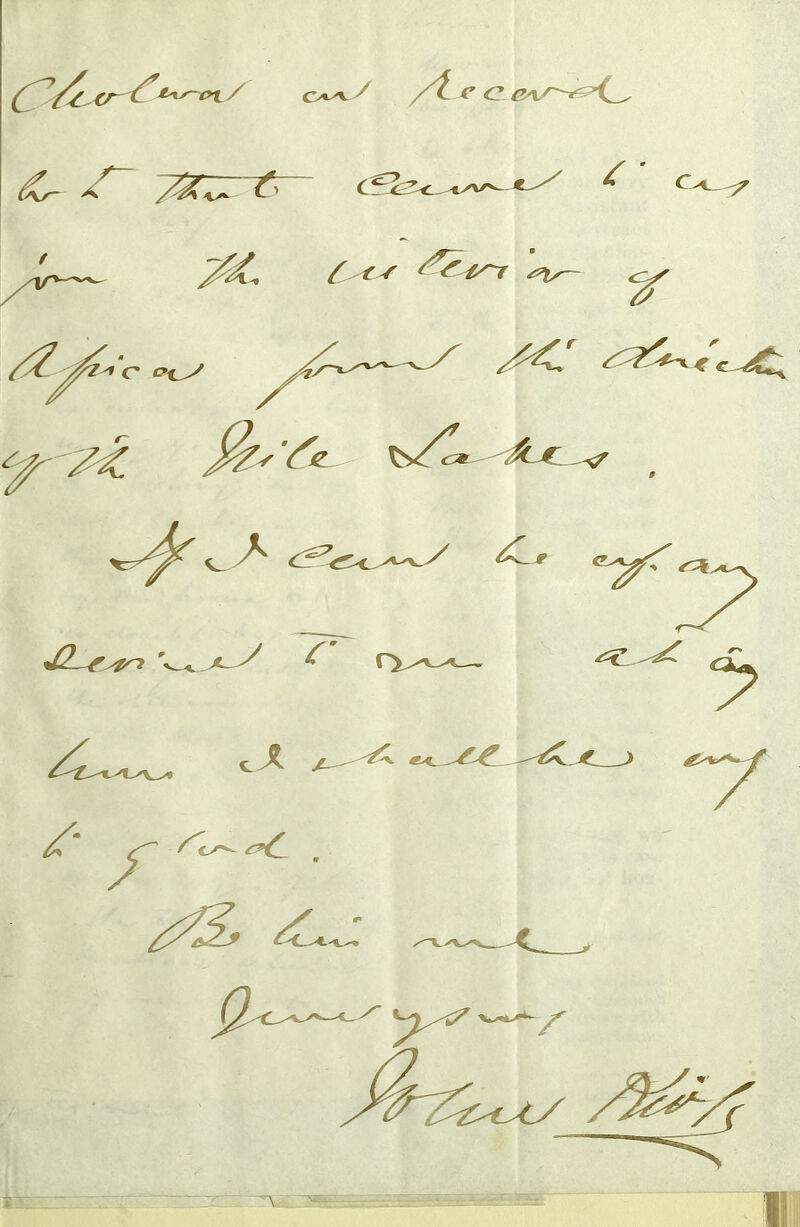 Cholera on record
but that came to us
from the interior of
Africa from the direction
of the Nile Lakes.
If I can be of any
service to you at any
time I shall be only
to glad.
Believe me
yours
John Kirk